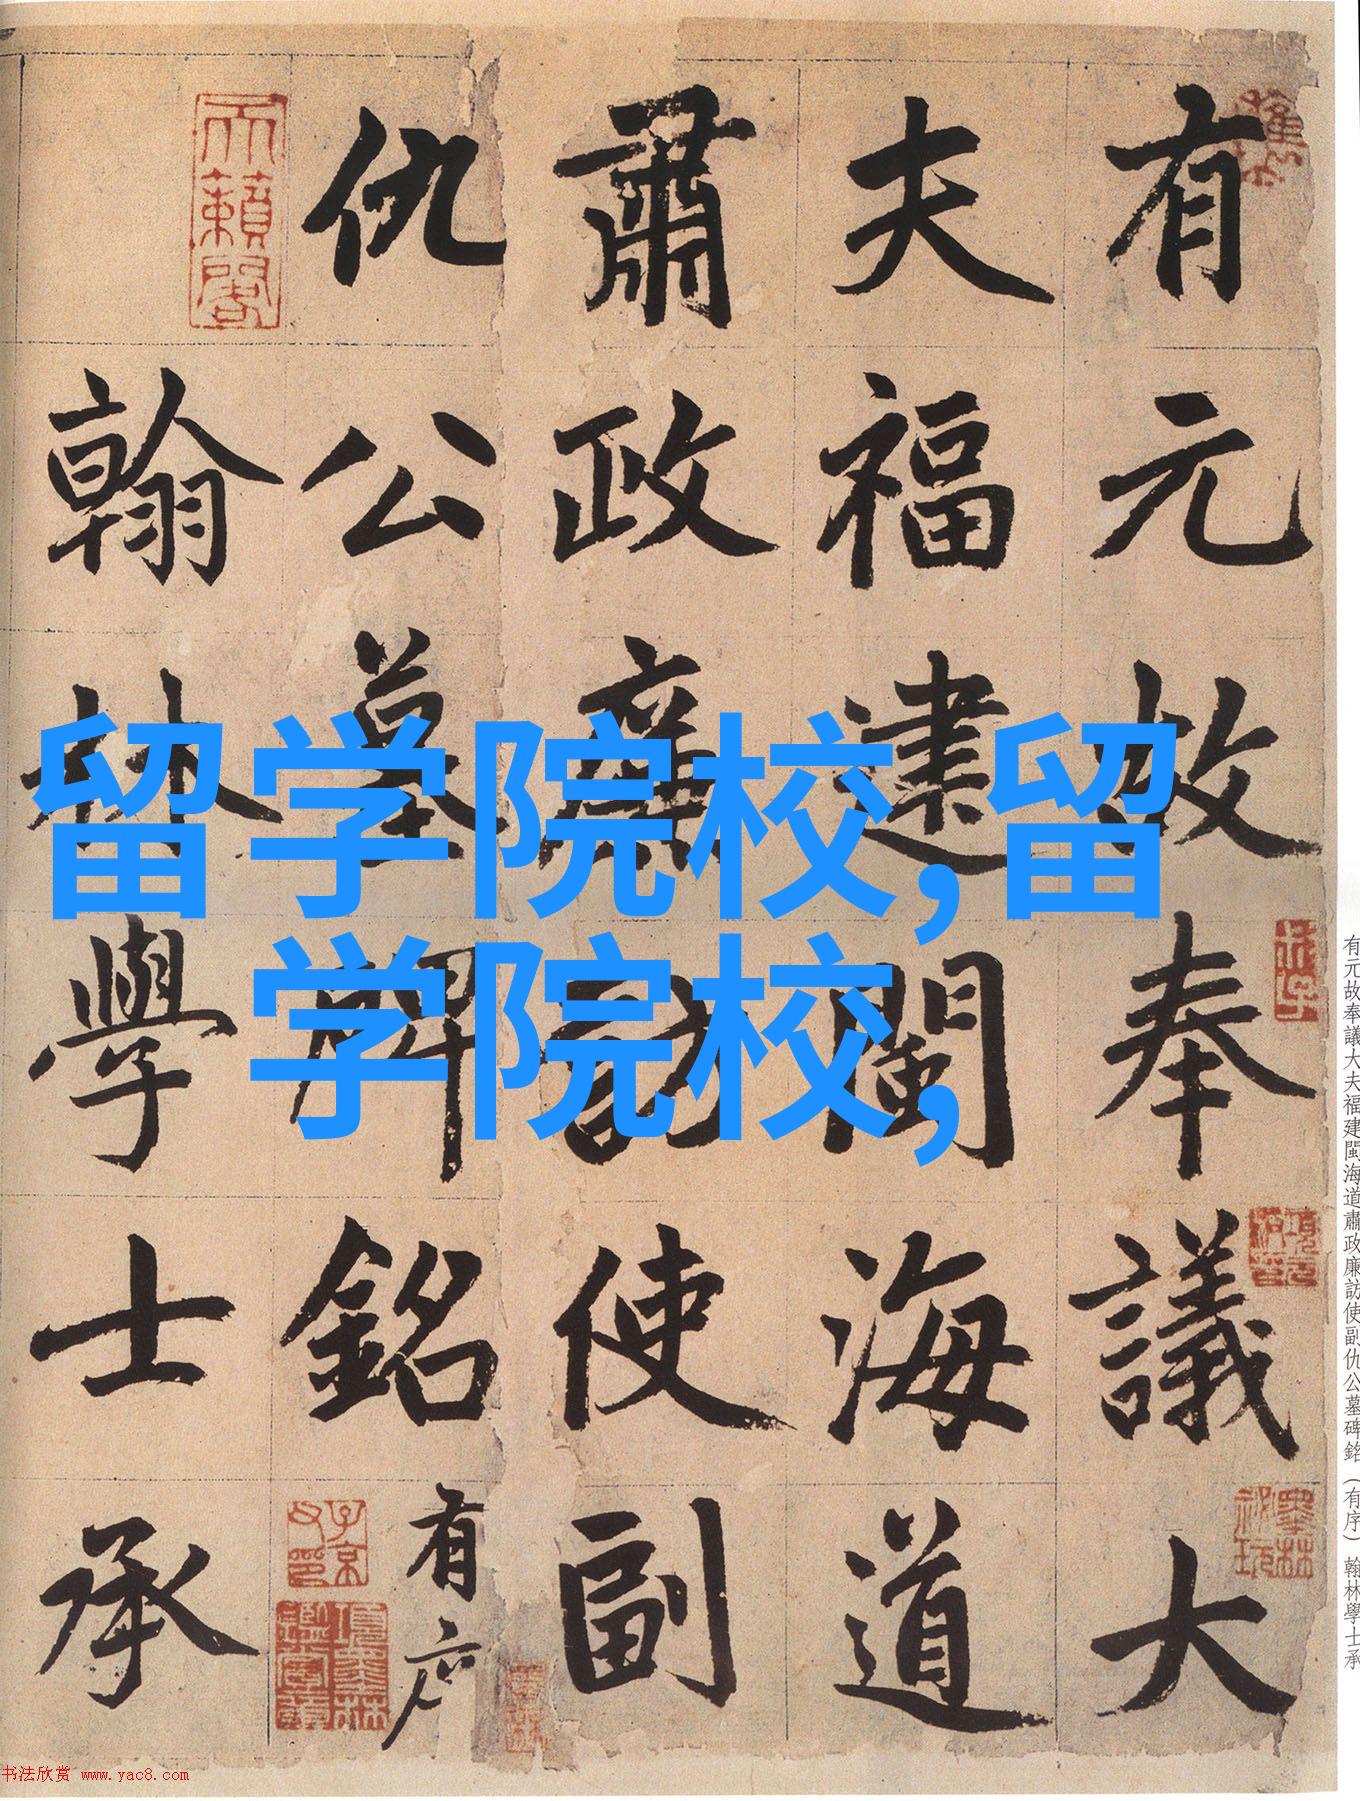 留学院校,留
学院校,
有元故奉議大
夫福建閩海道
肅政廉訪使副
仇公墓碑銘有序
翰林學士承
天籟閣
子京父印
項墨林鑑賞章
墨林祕玩
有元故奉議大夫福建閩海道肅政廉訪使副仇公墓碑銘（有序） 翰林學士承
书法欣赏 www.yac8.com